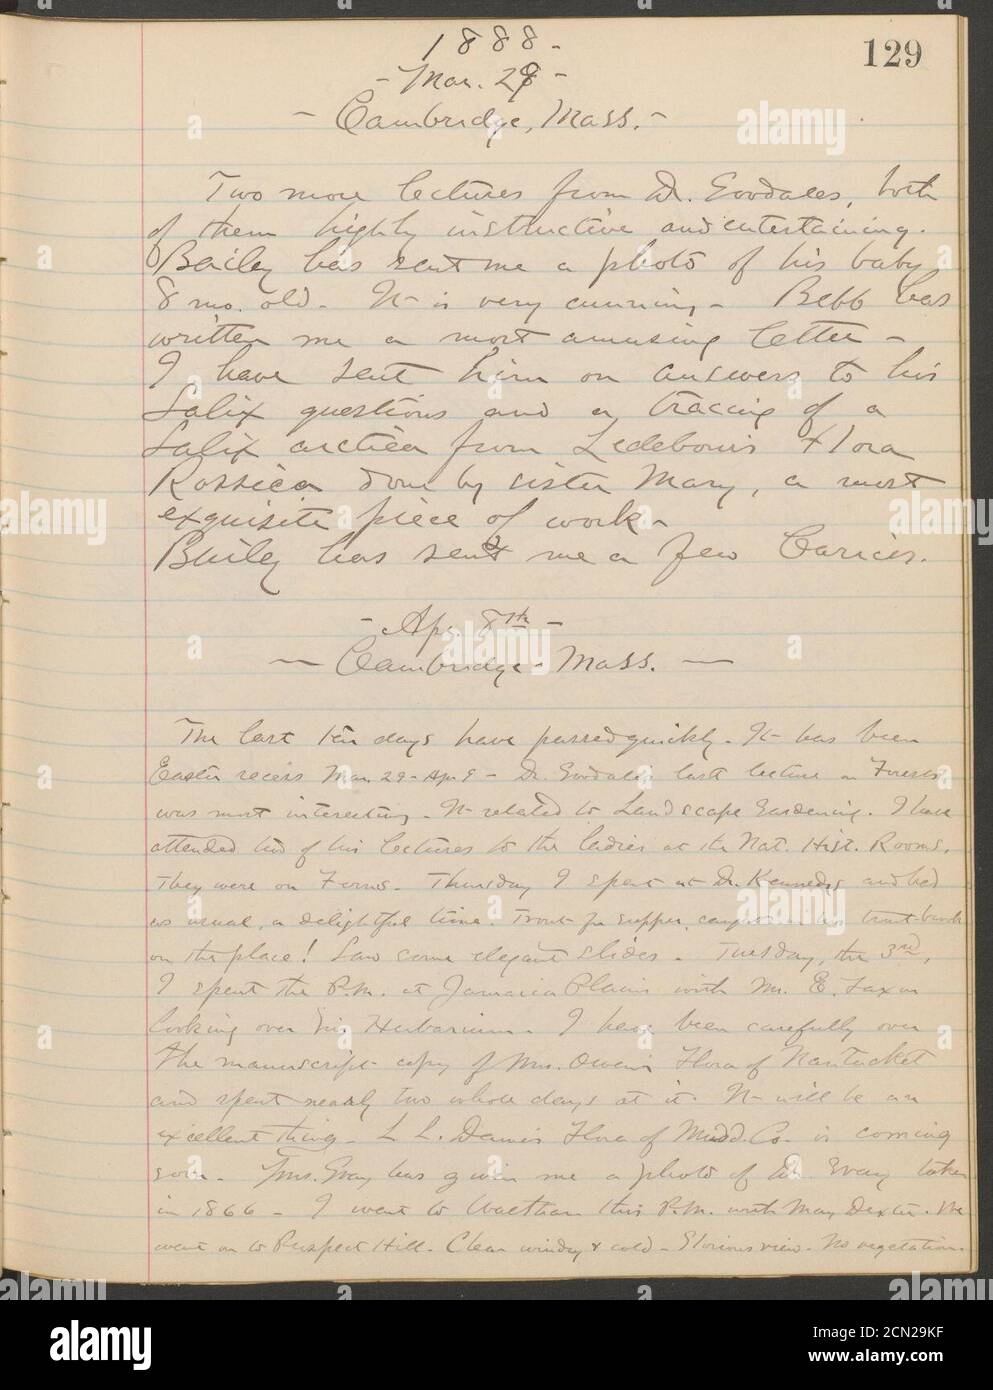 129
1888-
- Mar. 28 -
- Cambridge, Mass. -
Two more lectures from Dr. Goodales, both
of them highly instructive and entertaining.
Bailey has sent me a photo of his baby
8 mo. old - It is very cunning - Bebb has
written me a most amusing letter -
I have sent him on answers to his
Salix questions and a tracing of a
Salix arctica from Ledebour's Flora
Rossica done by sister Mary, a most
exquisite piece of work -
Bailey has sent me a few Carices.
- Apr. 8th -
- Cambridge - Mass. -
The last ten days have passed quickly. It has been
Easter recess Mar 29 - Apr 9 - Dr. Goodale's last lecture on Forests
was most interesting - It related to Landscape Gardening. I have
attended two of his lectures to the ladies at the Nat. Hist. Rooms.
They were on Ferns. Thursday I spent at Dr. Kennedys and had
as usual, a delightful time. Trout for supper, caught in his trout-brook
on the place! Saw some elegant slides - Tuesday, the 3rd,
I spent the P.M. at Jamaica Plain with Mr. E. Faxon
looking over his Herbarium. I have been carefully over
the manuscript copy of Mrs. Owen's Flora of Nantucket
and spent nearly two whole days at it. It will be an
excellent thing - L. L. Dame's Flora of Midd. Co. is coming
soon - Mrs. Gray has given me a photo of Dr. Gray taken
in 1866 - I went to Waltham this P.M. with May Dexter. We
went on to Prospect Hill - Clear windy & cold - Glorious view - No vegetation.
alamy
Image ID: 2CN29KF
www.alamy.com